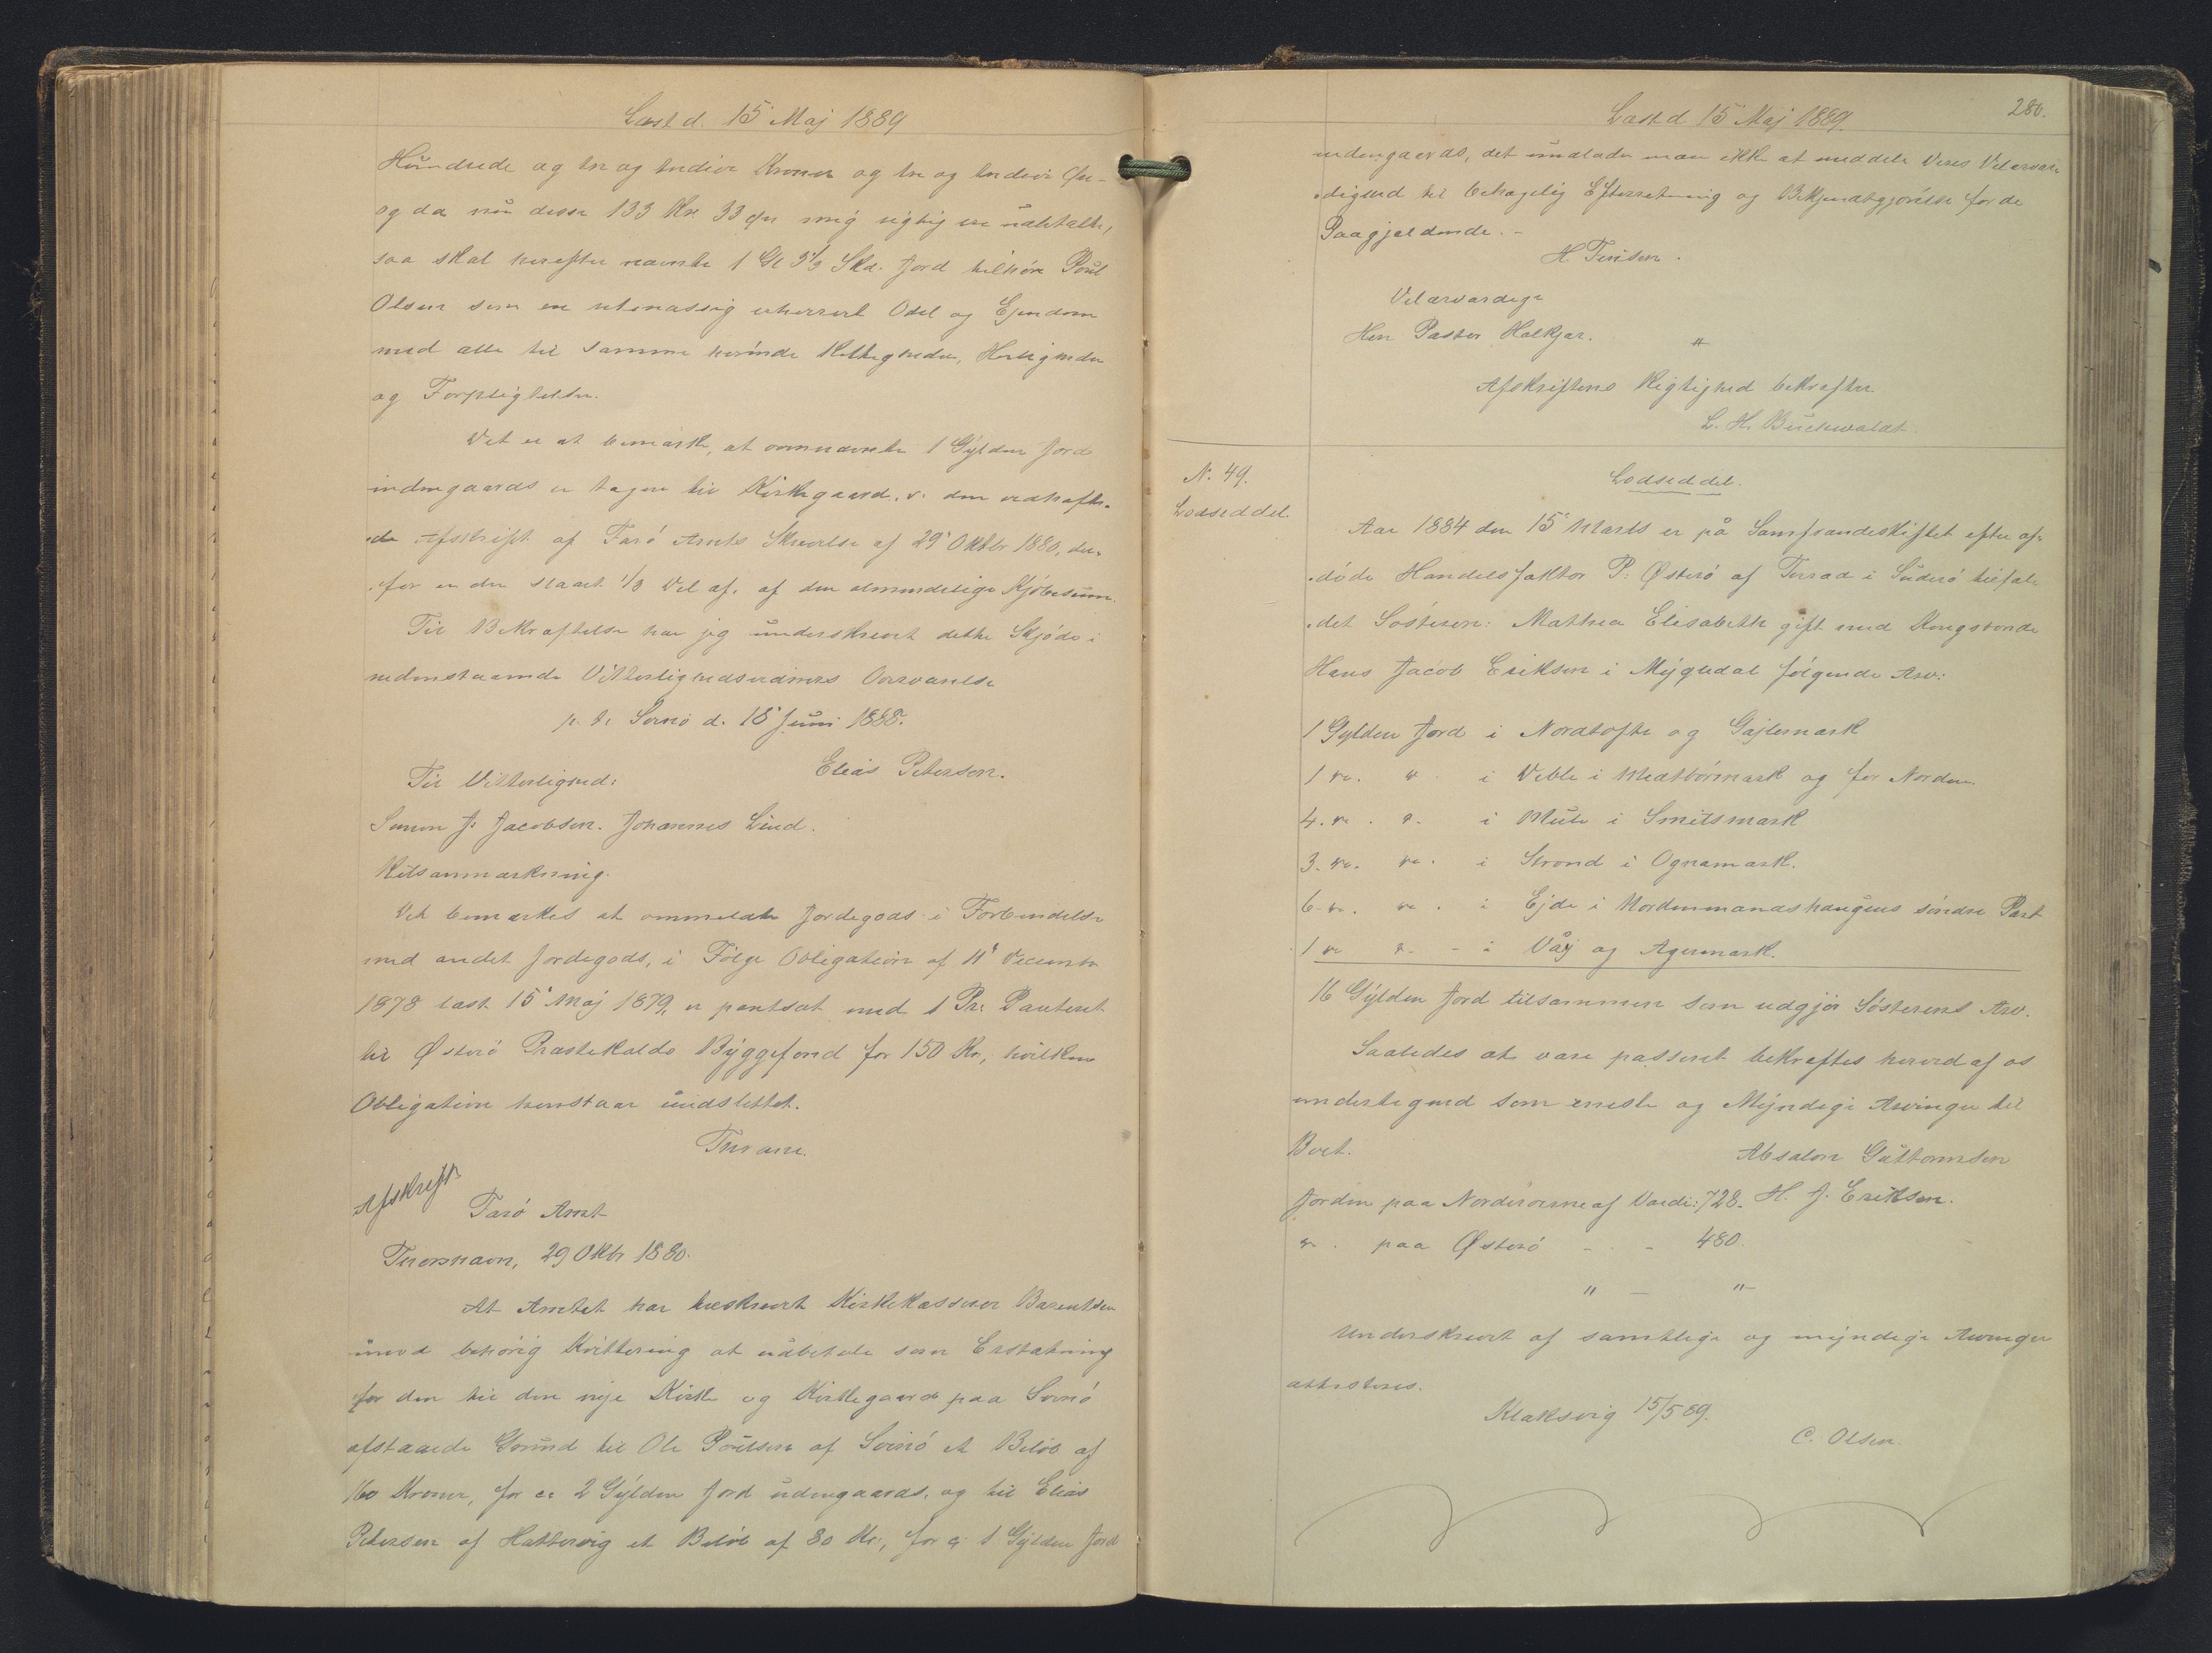 Læst d. 15' Maj 1889
Hundrede og tre og tredive Kroner og tre og tredive Øre -
og da nu disse 133 Kr. 33 Øre mig rigtig er udbetalte,
saa skal herefter nævnte 1 Gl 3 1/3 Skd. Jord tilhøre Poul
Olsen som en retmæssig erhvervet Odel og Ejendom
med alle til samme hørende Rettigheder, Herligheder
og Forpligtelser.
Det er at bemærke, at ommeldte 1 Gylden Jord
indengaards er tagen til Kirkegaard, v. den vedhæfte-
de Afskrift af Færø Amts Skrivelse af 29' Oktbr 1880, der-
for er der slaaet 1/3 Del af, af den almindelige Kjøbesum.
Til Bekræftelse har jeg underskrevet dette Skjøde i
nedenstaaende Vitterlighedsvidners Overværelse
p. t. Svinø d. 18' Juni 1888.
Elias Petersen.
Til Vitterlighed:
Simon J. Jacobsen. Johannes Lind.
Retsanmærkning.
Det bemærkes at ommeldte Jordegods i Forbindelse
med andet Jordegods, i Følge Obligation af 11' December
1878 læst 15' Maj 1879, er pantsat med 1 Pr: Panteret
til Østerø Præstekalds Byggefond for 150 Kr, hvilken
Obligation henstaar uudslettet.
Thrane.
Afskrift
Færø Amt
Thorshavn, 29 Oktbr 1880.
At Amtet har tilskrevet Kirkekasserer Barentsen
imod behørig Kvittering at udbetale som Erstatning
for den til den nye Kirke og Kirkegaard paa Svinø
afstaaede Grund til Ole Poulsen af Svinø et Beløb af
160 Kroner, for ca 2 Gylden Jord udengaards, og til Elias
Petersen af Hattervig et Beløb af 80 Kr., for ca 1 Gylden Jord
Læst d 15' Maj 1889.
280.
indengaards, det undlader man ikke at meddele Deres Velærvær-
dighed til behagelig Efterretning og Bekjendtgjørelse for de
Paagjældende. -
H. Finsen.
Velærværdige
Herr Pastor Halkjær.
"
Afskriftens Rigtighed bekræfter
L. H. Buchwaldt.
N. 49.
Lodseddel.
Lodseddel.
Aar 1884 den 15' Marts er på Samfrændeskiftet efter af-
døde Handelsfaktor P: Østerø af Tverraa i Suderø tilfal-
det Søsteren: Mathea Elisabeth gift med Kongsbonde
Hans Jacob Eriksen i Mygledal følgende Arv:
1 Gylden Jord i Nordtofte og Gajlemark
1 do. do. i Deble i Meatbørmark og for Norden
4. do. do. i Mule i Smitsmark
3. do. do. i Strond i Ognamark.
6 do. do. i Ejde i Nordmannahaugens søndre Part
1 do do - i Våg og Agermark.
16 Gylden Jord tilsammen som udgjør Søsterens Arv.
Saaledes at være passeret bekræftes herved af os
undertegned som eneste og Myndige Arvinger til
Boet.
Absalon Guttormsen
Jorden paa Norderøerne af Værdi: 728.
H. J. Eriksen.
do. paa Østerø - - 480.
" - "
Underskrevet af samtlige og myndige Arvinger
attesteres.
Klaksvig 15/5 89.
C. Olsen.